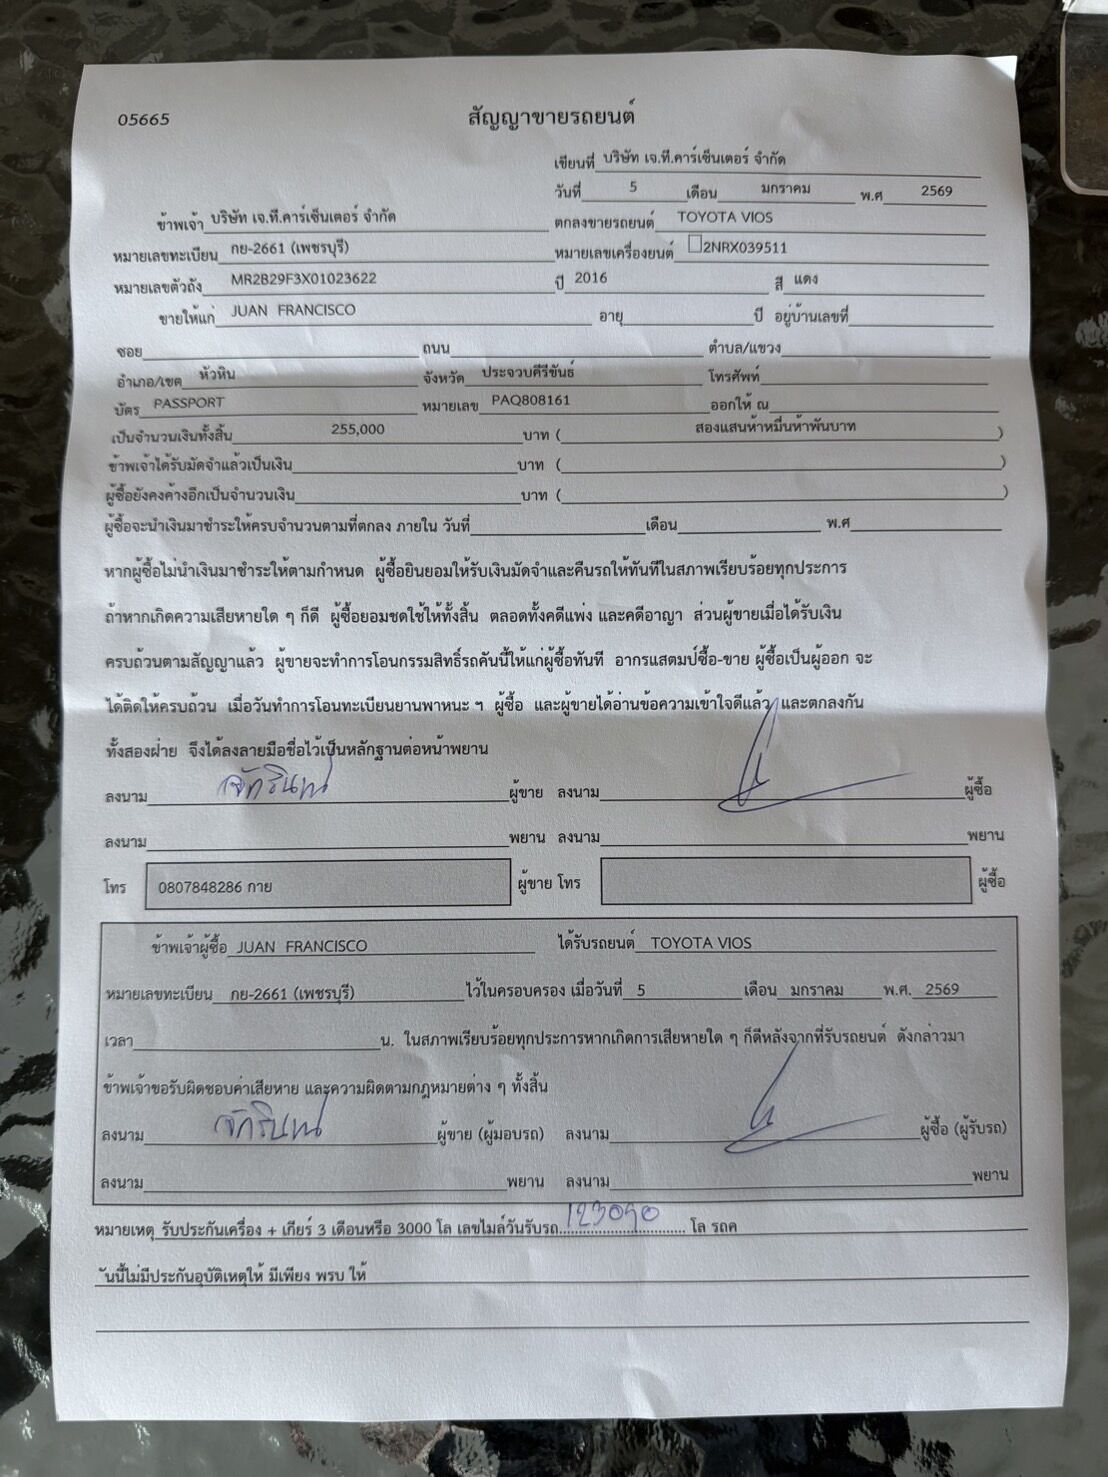 05665
สัญญาขายรถยนต์
เขียนที่ บริษัท เจ.ที.คาร์เซ็นเตอร์ จำกัด
วันที่ 5 เดือน มกราคม พ.ศ 2569
ข้าพเจ้า บริษัท เจ.ที.คาร์เซ็นเตอร์ จำกัด ตกลงขายรถยนต์ TOYOTA VIOS
หมายเลขทะเบียน กย-2661 (เพชรบุรี) หมายเลขเครื่องยนต์ 2NRX039511
หมายเลขตัวถัง MR2B29F3X01023622 ปี 2016 สี แดง
ขายให้แก่ JUAN FRANCISCO อายุ ปี อยู่บ้านเลขที่
ซอย ถนน ตำบล/แขวง
อำเภอ/เขต หัวหิน จังหวัด ประจวบคีรีขันธ์ โทรศัพท์
บัตร PASSPORT หมายเลข PAQ808161 ออกให้ ณ
เป็นจำนวนเงินทั้งสิ้น 255,000 บาท ( สองแสนห้าหมื่นห้าพันบาท )
ข้าพเจ้าได้รับมัดจำแล้วเป็นเงิน บาท ( )
ผู้ซื้อยังคงค้างอีกเป็นจำนวนเงิน บาท ( )
ผู้ซื้อจะนำเงินมาชำระให้ครบจำนวนตามที่ตกลง ภายใน วันที่ เดือน พ.ศ
หากผู้ซื้อไม่นำเงินมาชำระให้ตามกำหนด ผู้ซื้อยินยอมให้รับเงินมัดจำและคืนรถให้ทันทีในสภาพเรียบร้อยทุกประการ
ถ้าหากเกิดความเสียหายใด ๆ ก็ดี ผู้ซื้อยอมชดใช้ให้ทั้งสิ้น ตลอดทั้งคดีแพ่ง และคดีอาญา ส่วนผู้ขายเมื่อได้รับเงิน
ครบถ้วนตามสัญญาแล้ว ผู้ขายจะทำการโอนกรรมสิทธิ์รถคันนี้ให้แก่ผู้ซื้อทันที อากรแสตมป์ซื้อ-ขาย ผู้ซื้อเป็นผู้ออก จะ
ได้ติดให้ครบถ้วน เมื่อวันทำการโอนทะเบียนยานพาหนะ ฯ ผู้ซื้อ และผู้ขายได้อ่านข้อความเข้าใจดีแล้ว และตกลงกัน
ทั้งสองฝ่าย จึงได้ลงลายมือชื่อไว้เป็นหลักฐานต่อหน้าพยาน
ลงนาม จักรินทร์ ผู้ขาย ลงนาม ผู้ซื้อ
ลงนาม พยาน ลงนาม พยาน
โทร 0807848286 กาย ผู้ขาย โทร ผู้ซื้อ
ข้าพเจ้าผู้ซื้อ JUAN FRANCISCO ได้รับรถยนต์ TOYOTA VIOS
หมายเลขทะเบียน กย-2661 (เพชรบุรี) ไว้ในครอบครอง เมื่อวันที่ 5 เดือน มกราคม พ.ศ. 2569
เวลา น. ในสภาพเรียบร้อยทุกประการหากเกิดการเสียหายใด ๆ ก็ดีหลังจากที่รับรถยนต์ ดังกล่าวมา
ข้าพเจ้าขอรับผิดชอบค่าเสียหาย และความผิดตามกฎหมายต่าง ๆ ทั้งสิ้น
ลงนาม จักรินทร์ ผู้ขาย (ผู้มอบรถ) ลงนาม ผู้ซื้อ (ผู้รับรถ)
ลงนาม พยาน ลงนาม พยาน
หมายเหตุ รับประกันเครื่อง + เกียร์ 3 เดือนหรือ 3000 โล เลขไมล์วันรับรถ 123090 โล รถค
ันนี้ไม่มีประกันอุบัติเหตุให้ มีเพียง พรบ ให้